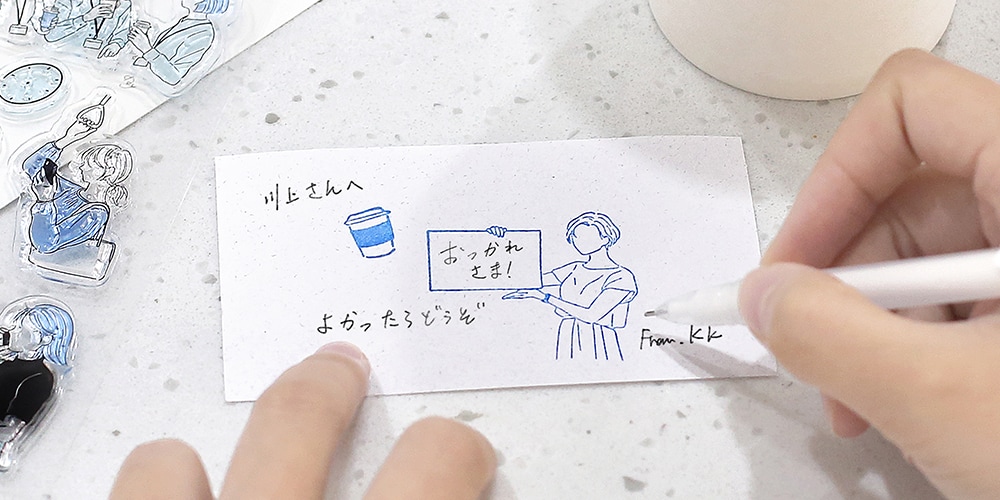 川上さんへ
おつかれ
さま!
よかったらどうぞ
From. KK